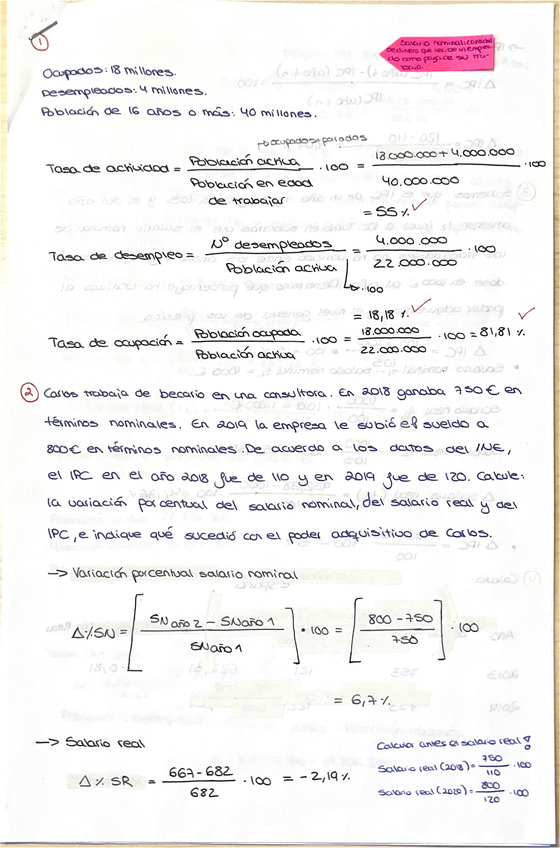 1
Salario nominal: cantidad
de dinero que recibe un emplea-
do como pago de su tra-
bajo.
Ocupados: 18 millones.
Desempleados: 4 millones.
Población de 16 años o más: 40 millones.
→ ocupados + parados
Tasa de actividad = Población activa / Población en edad de trabajar · 100 = 18.000.000 + 4.000.000 / 40.000.000 · 100
= 55 %. ✓
Tasa de desempleo = Nº desempleados / Población activa = 4.000.000 / 22.000.000 · 100
↳ · 100
= 18,18 %. ✓
Tasa de ocupación = Población ocupada / Población activa · 100 = 18.000.000 / 22.000.000 · 100 = 81,81 %. ✓
2 Carlos trabaja de becario en una consultora. En 2018 ganaba 750 € en
términos nominales. En 2019 la empresa le subió el sueldo a
800€ en términos nominales. De acuerdo a los datos del INE,
el IPC en el año 2018 fue de 110 y en 2019 fue de 120. Calcule:
la variación porcentual del salario nominal, del salario real y del
IPC, e indique qué sucedió con el poder adquisitivo de Carlos.
→ Variación porcentual salario nominal
Δ%SN = [ SN año 2 − SN año 1 / SN año 1 ] · 100 = [ 800 − 750 / 750 ] · 100
= 6,7 %.
→ Salario real
Δ % SR = 667 − 682 / 682 · 100 = − 2,19 %
Calcular antes el salario real!
Salario real (2018) = 750 / 110 · 100
Salario real (2020) = 800 / 120 · 100